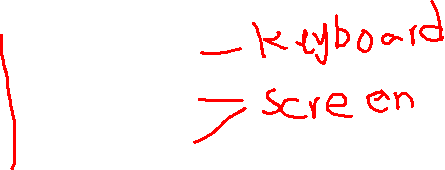 keyboard
screen